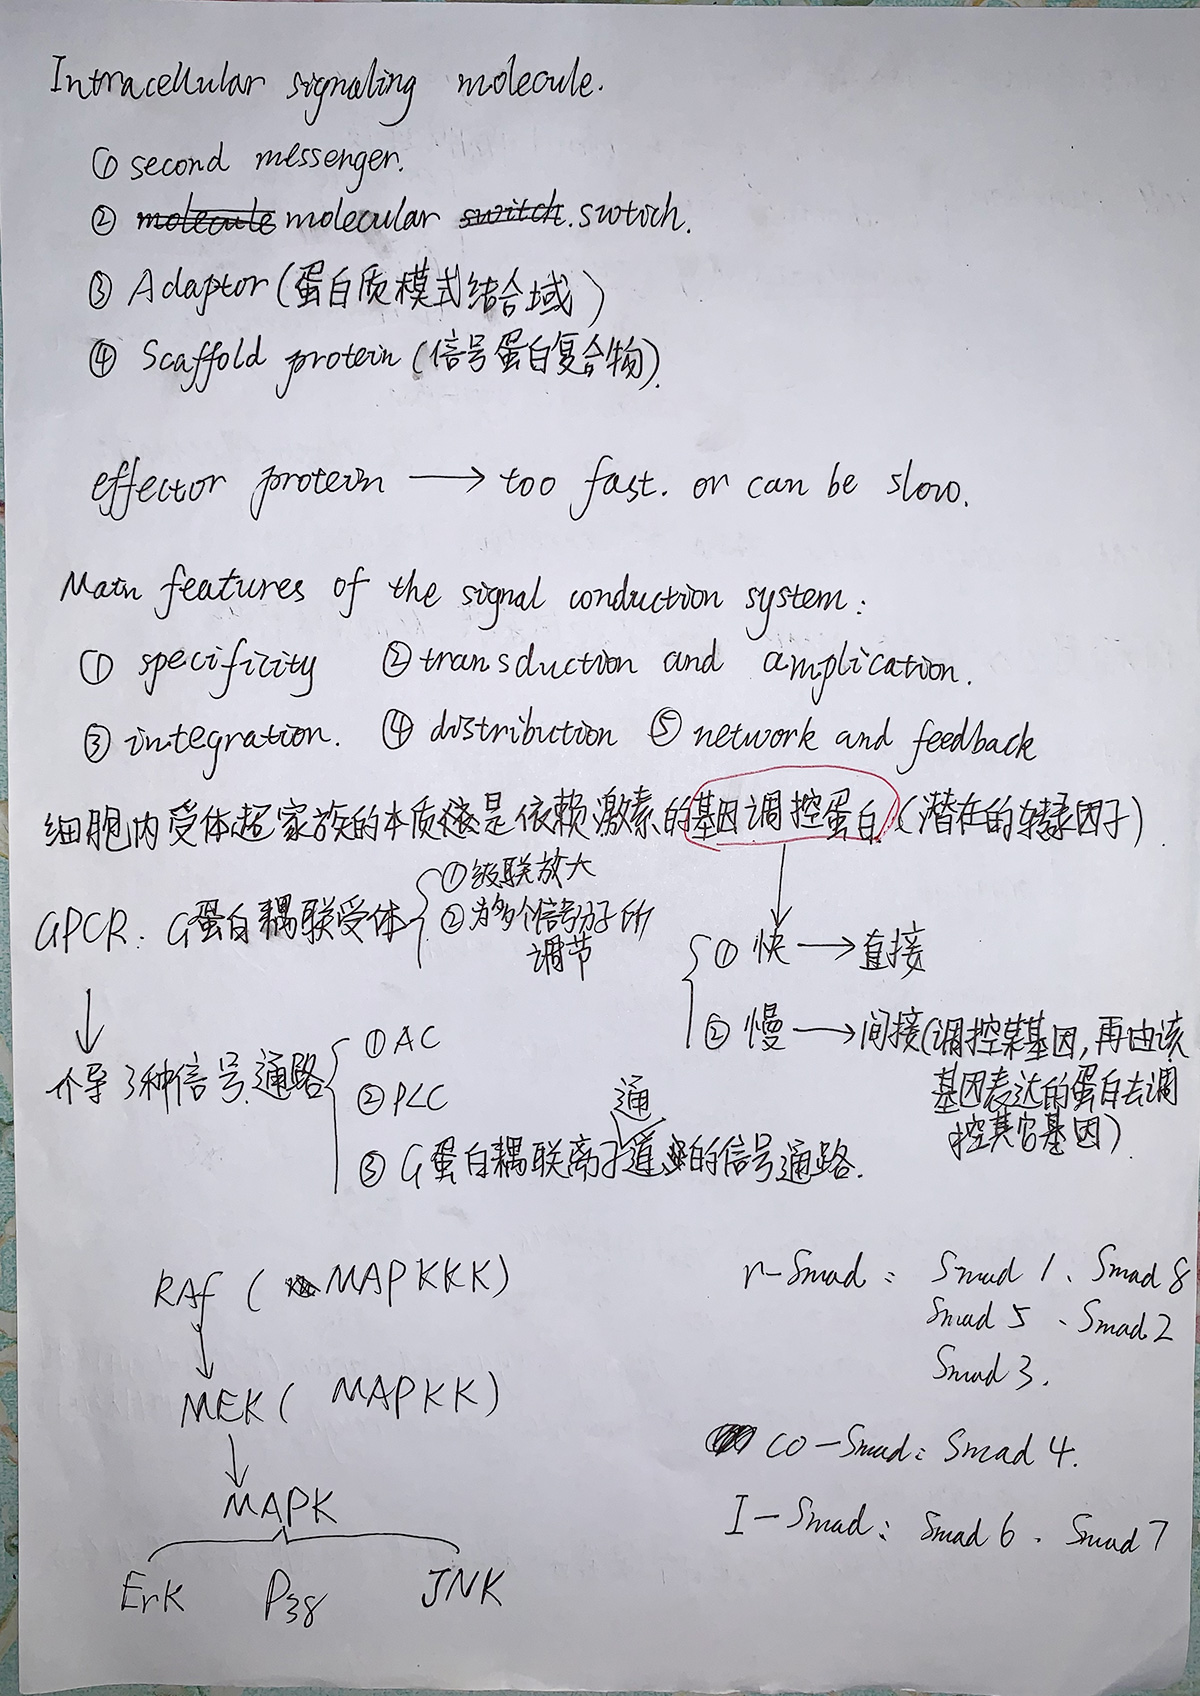 Intracellular signaling molecule.
① second messenger.
② molecule molecular switch. swtich.
③ Adaptor (蛋白质模式结合域)
④ Scaffold protein (信号蛋白复合物).
effector protein → too fast. or can be slow.
Main features of the signal conduction system:
① specificity ② transduction and amplication.
③ integration. ④ distribution ⑤ network and feedback
细胞内受体超家族的本质是依赖激素的基因调控蛋白 (潜在的转录因子)
GPCR: G蛋白耦联受体
① 级联放大
② 为多个信号分子所
调节
① 快 → 直接
② 慢 → 间接(调控某基因,再由该
基因表达的蛋白去调
控其它基因).
↓
介导3种信号通路
① AC
② PLC
通
③ G蛋白耦联离子道的信号通路.
RAf ( MAPKKK)
↓
MEK ( MAPKK)
↓
MAPK
Erk P38 JNK
r-Smad: Smad 1、Smad 8
Smad 5 、Smad 2
Smad 3.
co-Smad: Smad 4.
I-Smad: Smad 6 、Smad 7